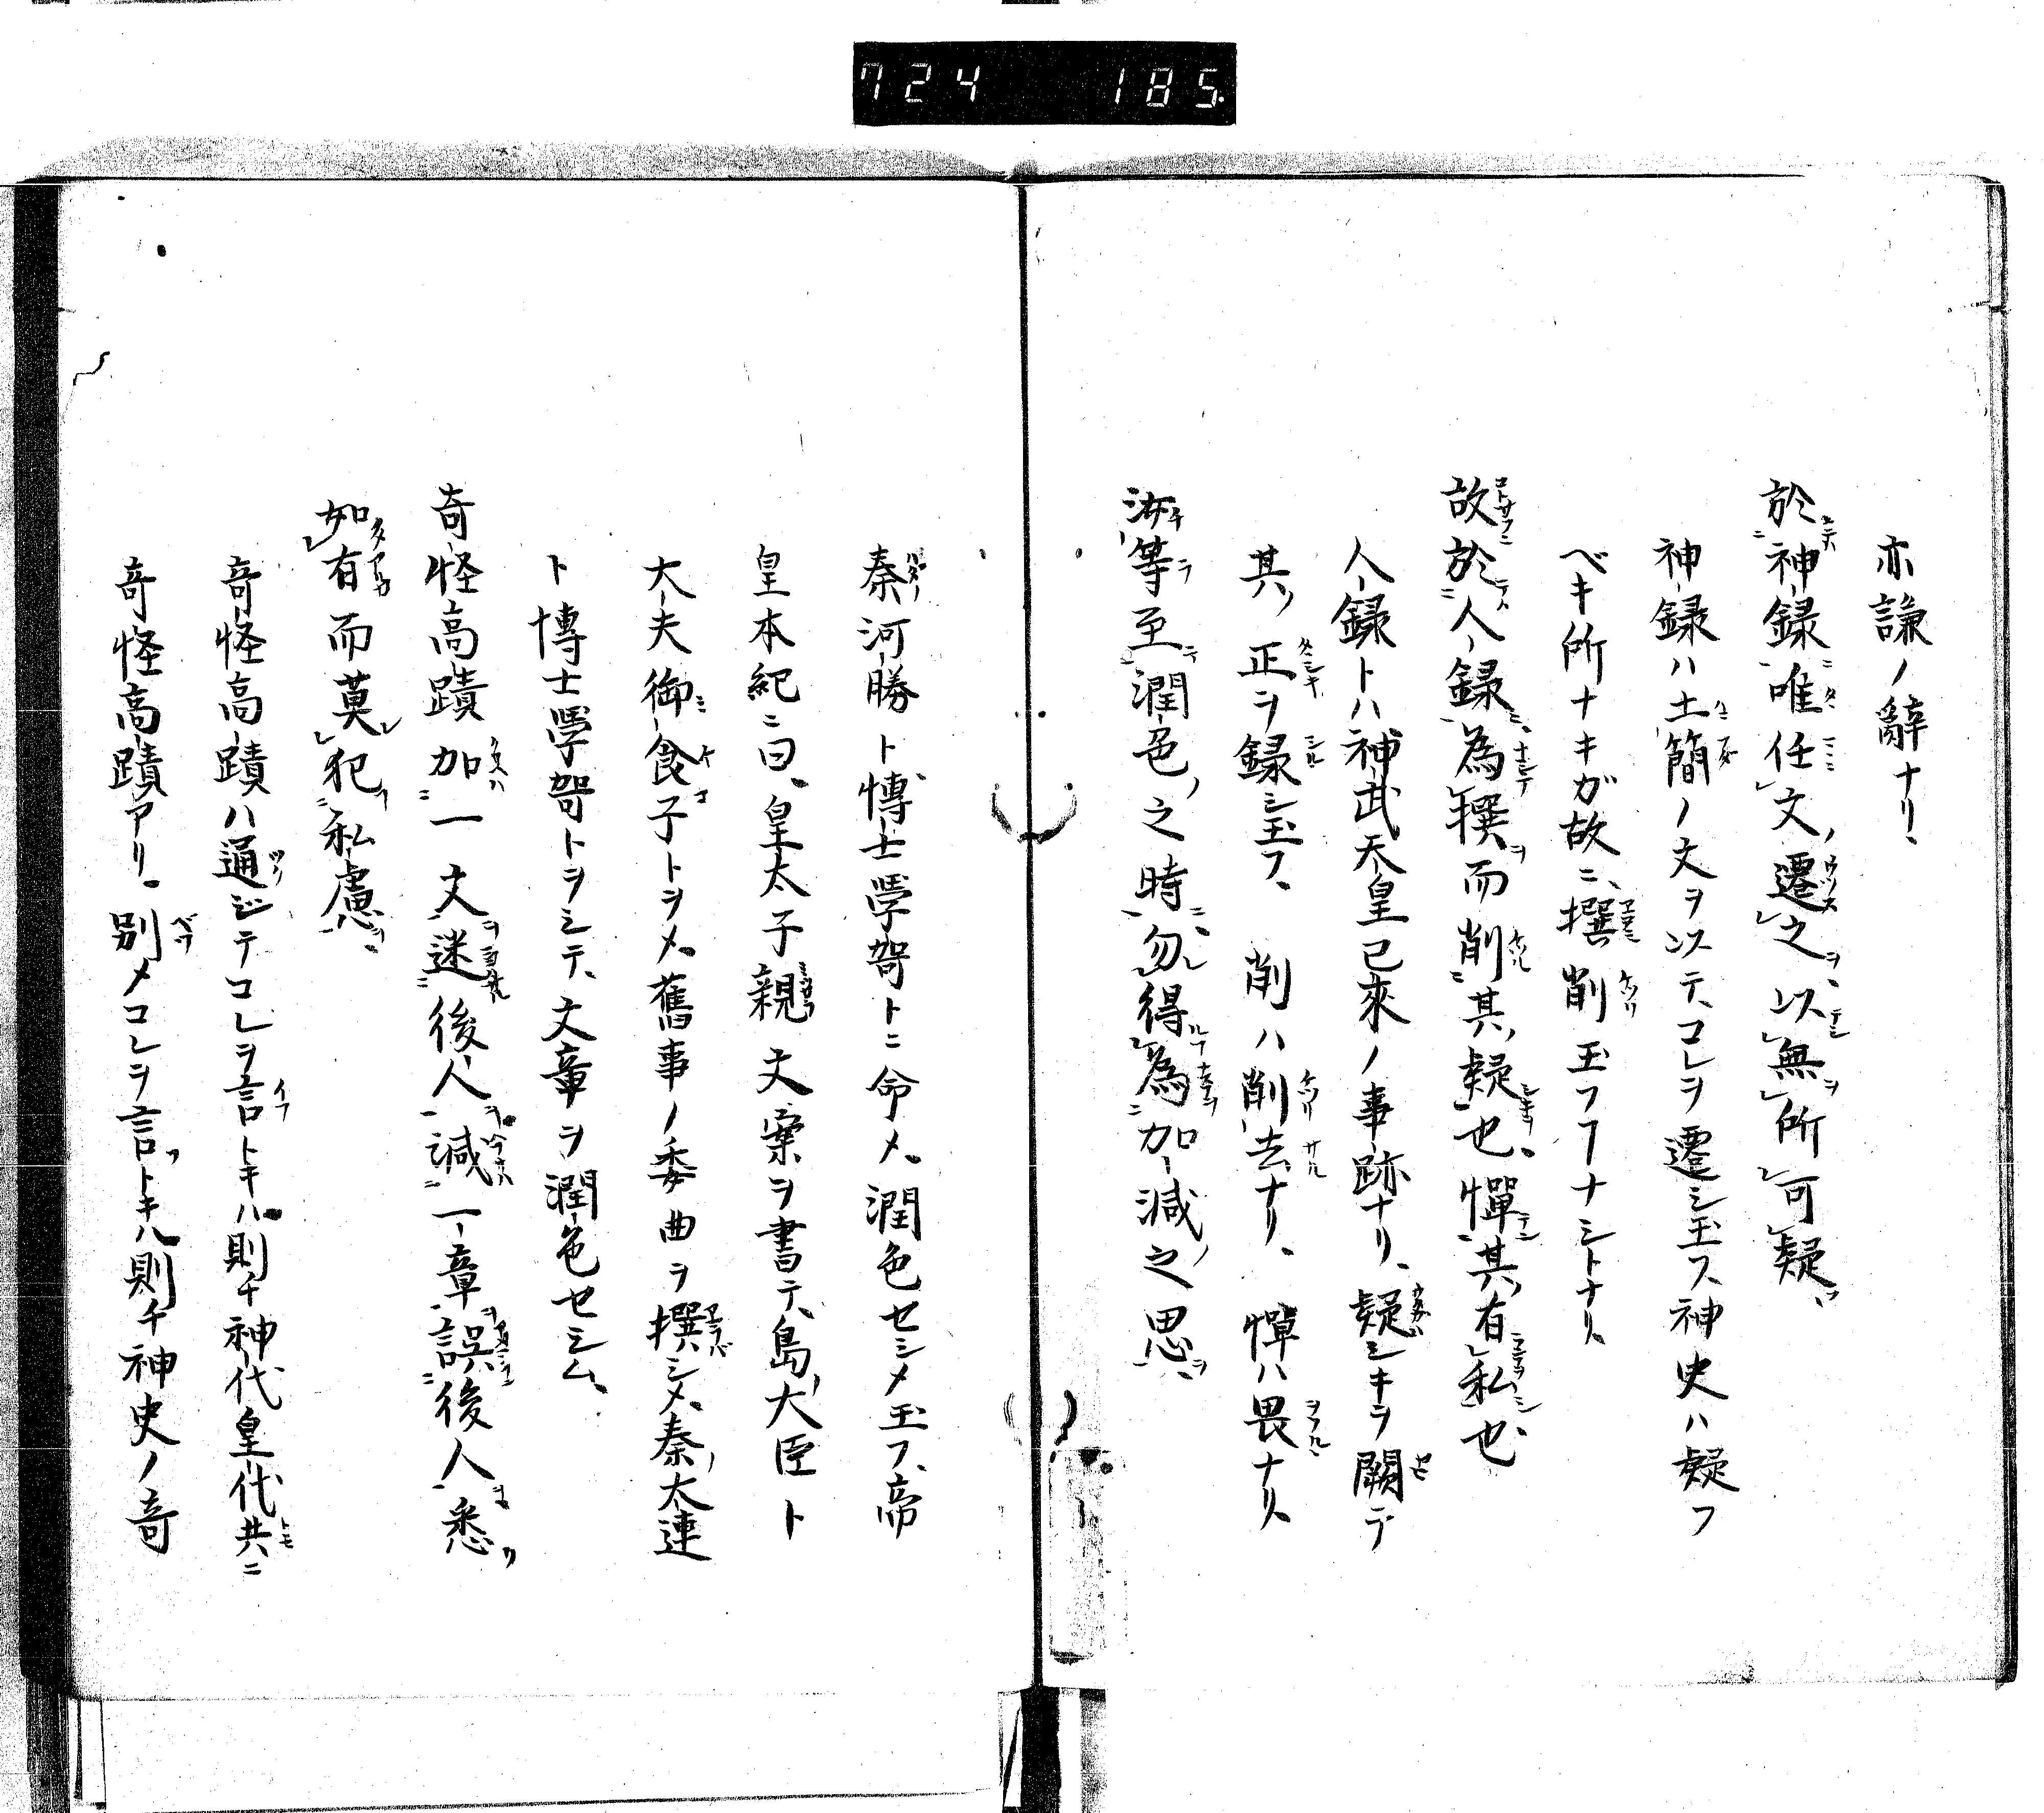 724 185.
亦謙ノ辭ナリ、
於神録唯任文遷之、以無所可疑、
神録ハ土簡ノ文ヲ以テ、コレヲ遷シ玉フ、神史ハ疑フ
ベキ所ナキガ故ニ、撰削玉フフナシトナリ、
故於人録、為撰而削其疑也、憚其有私也、
人録トハ神武天皇已來ノ事跡ナリ、疑シキヲ闕テ
其ノ正ヲ録シ玉フ、削ハ削去ナリ、憚ハ畏ナリ、
等至潤色之時、勿得為加減之思、
秦河勝ト博士學哿トニ命メ、潤色セシメ玉フ、帝
皇本紀ニ曰、皇太子親文案ヲ書テ、島大臣ト
大夫御食子トヲメ、舊事ノ委曲ヲ撰シメ、秦大連
ト博士學哿トヲシテ、文章ヲ潤色セシム、
奇怪高蹟加一文迷後人、減一章誤後人、悉
如有而莫犯私慮、
奇怪高蹟ハ通ジテコレヲ言トキハ、則チ神代皇代共ニ
奇怪高蹟アリ、別メコレヲ言トキハ、則チ神史ノ奇